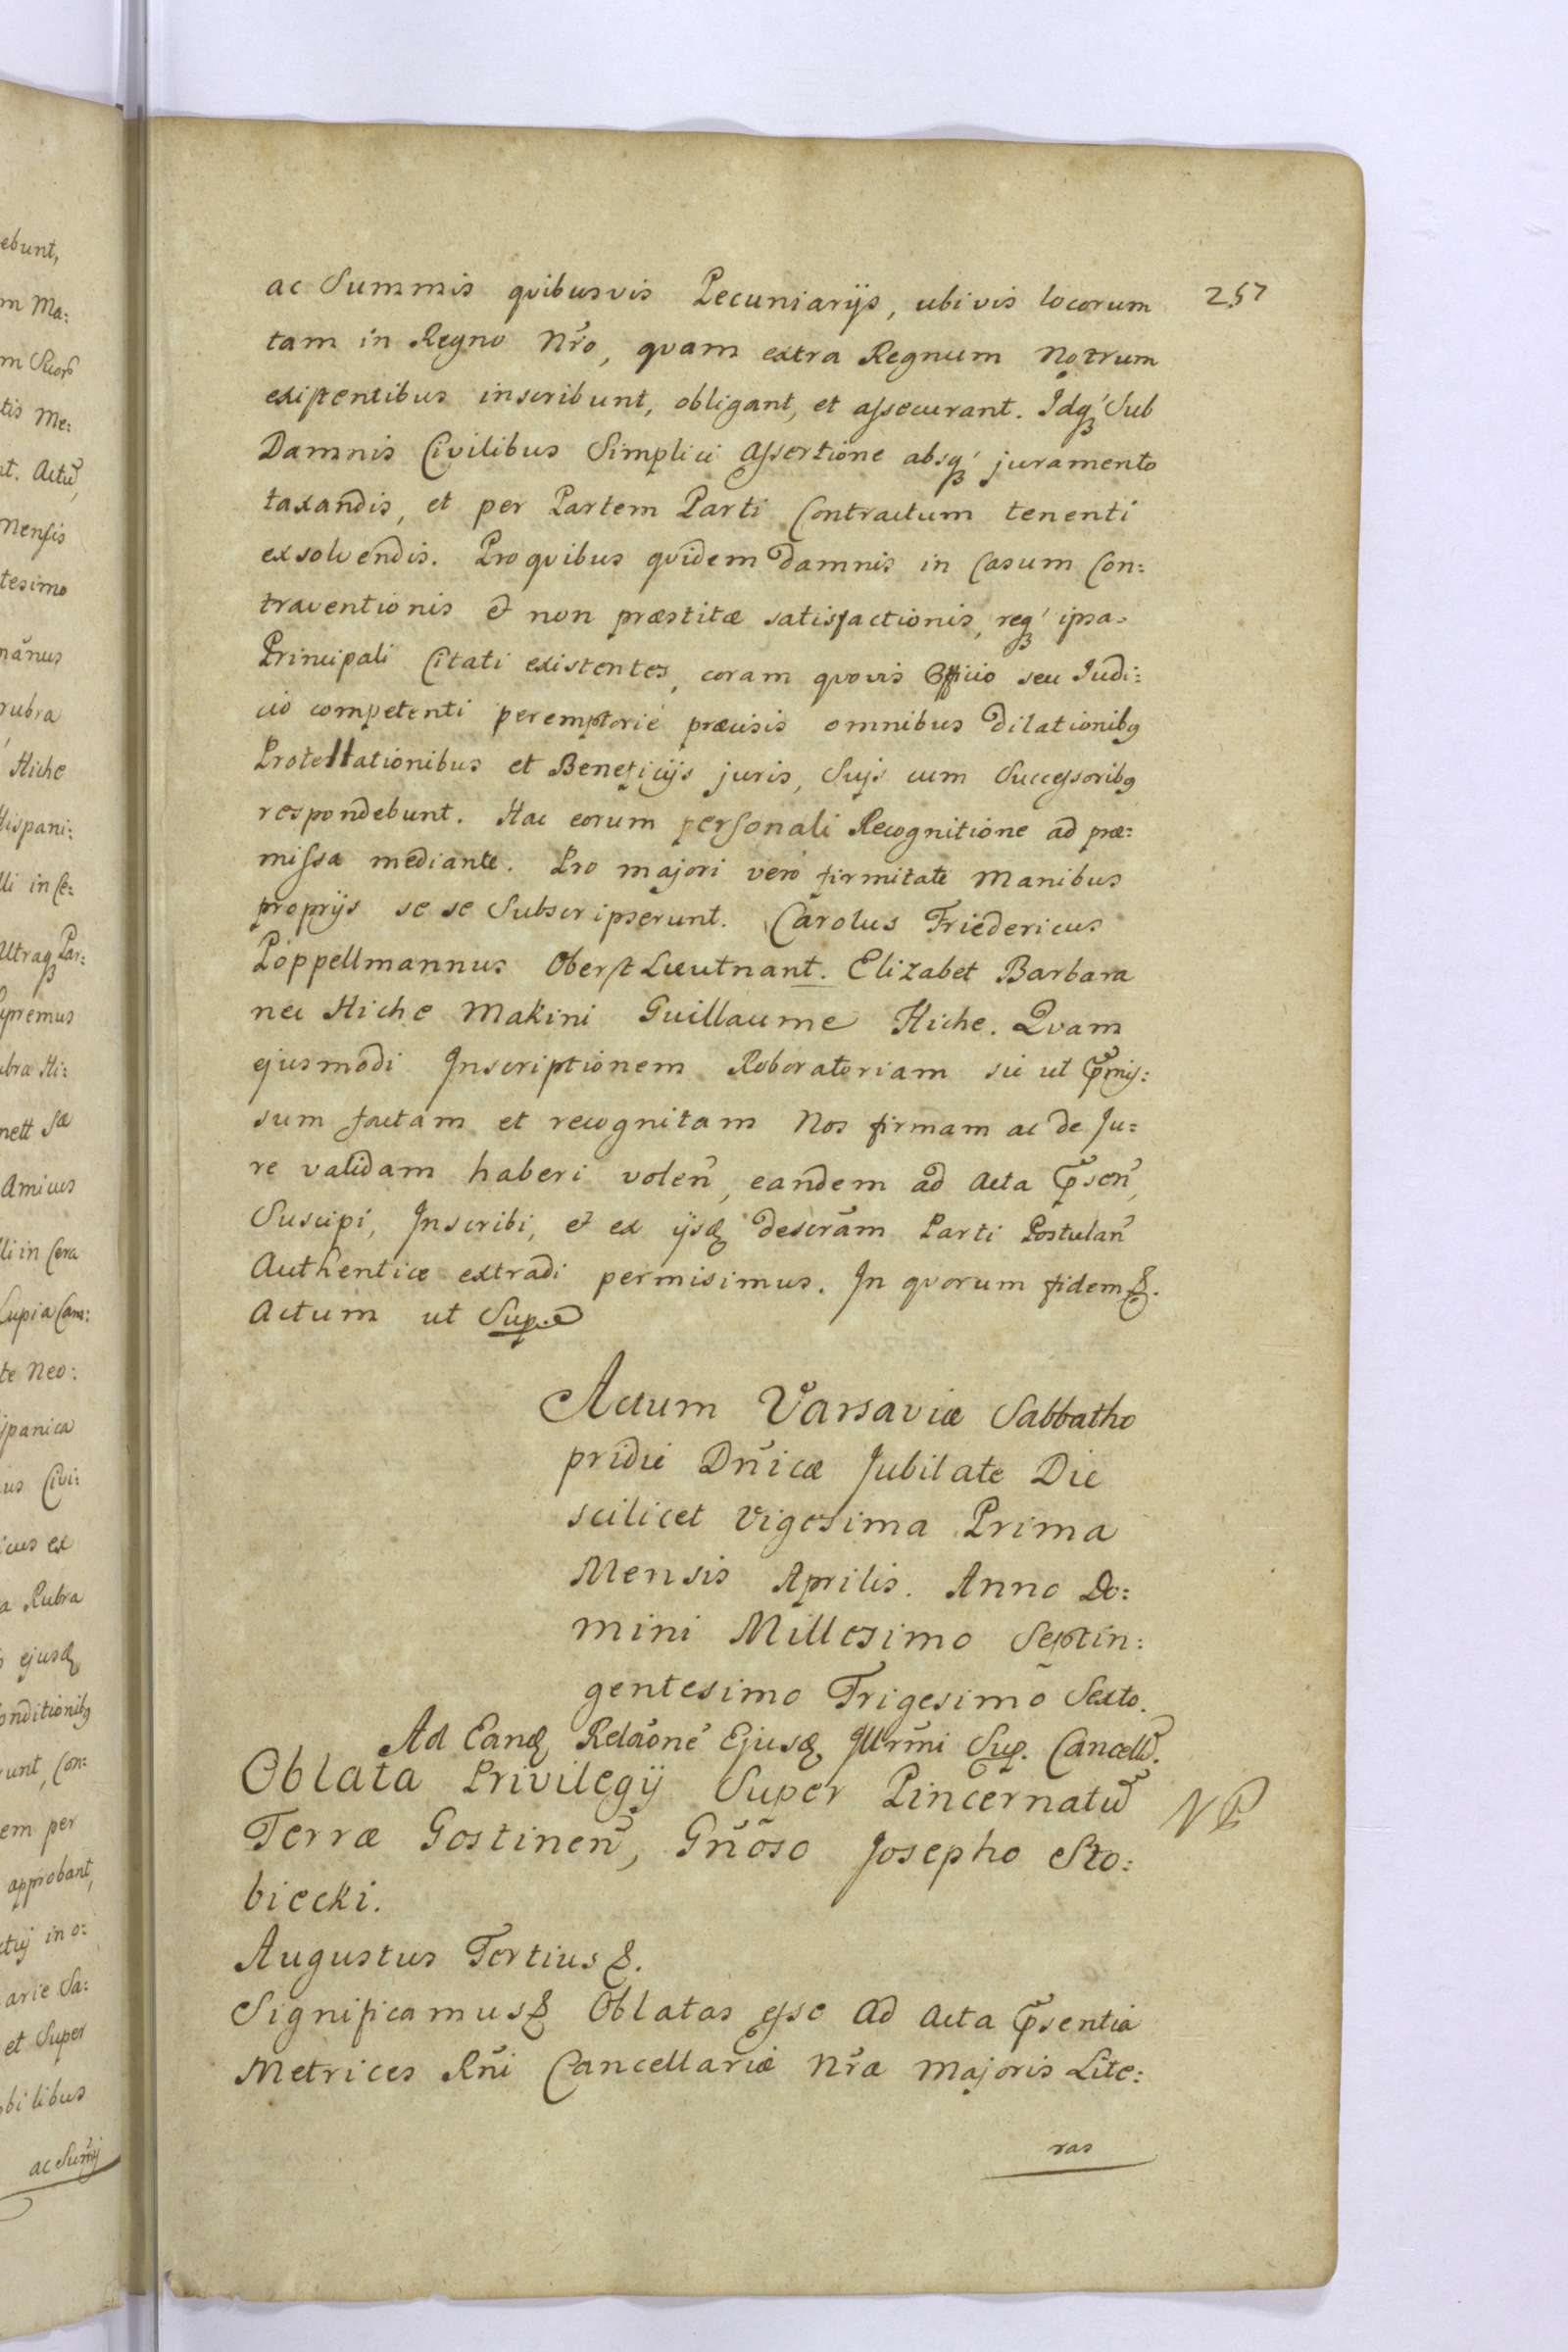 ac Summis qvibusvis Pecuniarijs, ubivis locorum 257
tam in Regno Nr̃o, qvam extra Regnum Notrum
existentibus inscribunt, obligant, et assecurant. Idq́ʒ Sub
Damnis Civilibus Simplici Assertione absq́ʒ juramento
taxandis, et per Partem Parti Contractum tenenti
exsolvendis. Pro qvibus qvidem damnis in Casum Con:
traventionis & non præstitæ satisfactionis, req́ʒ ipsa
Principali Citati existentes, coram qvovis Officio seu Judi:
cio competenti peremptorie præcisis omnibus dilationibꝯ
Protestationibus et Beneficijs juris, Suis cum Successoribꝯ
respondebunt. Hac eorum personali Recognitione ad præ:
missa mediante. Pro majori vero firmitate Manibus
proprijs se se Subscripserunt. Carolus Friedericus
Poppellmannus Oberst Lieutnant. Elizabet Barbara
nee Hiche Makini Guillaume Hiche. Qvam
ejusmodi Inscriptionem Roboratoriam sic ut p̃mis:
sum factam et recognitam Nos firmam ac de Ju:
re validam haberi volen̄, eandem ad Acta p̃sen̄,
Suscipi, Inscribi, & ex ijsꝫ descrãm Parti Postulan̄
Authentice extradi permisimus. In qvorum fidem &.
Actum ut Sup.
Actum Varsaviæ Sabbatho
pridie Dn̄icæ Jubilate Die
scilicet Vigesima Prima
Mensis Aprilis. Anno Do:
mini Millesimo Septin:
gentesimo Trigesimo Sexto.
Ad Eandꝫ Relãone Ejusdꝫ Illr̃mi Sup. Cancellr̃.
Oblata Privilegij Super Pincernatũ NP
Terræ Gostinen̄, Gn̄oso Josepho Sto:
biecki.
Augustus Tertius &.
Significamus & Oblatas esse Ad Acta p̃sentia
Metrices Rn̄i Cancellariæ Nr̃æ Majoris Lite:
ras